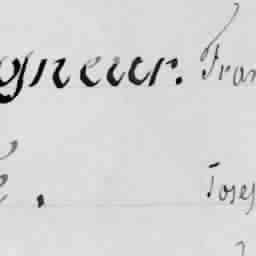 gneur. Fran
e. Josep